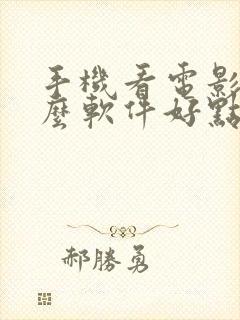 手機看電影
麼軟件好點
郝勝勇